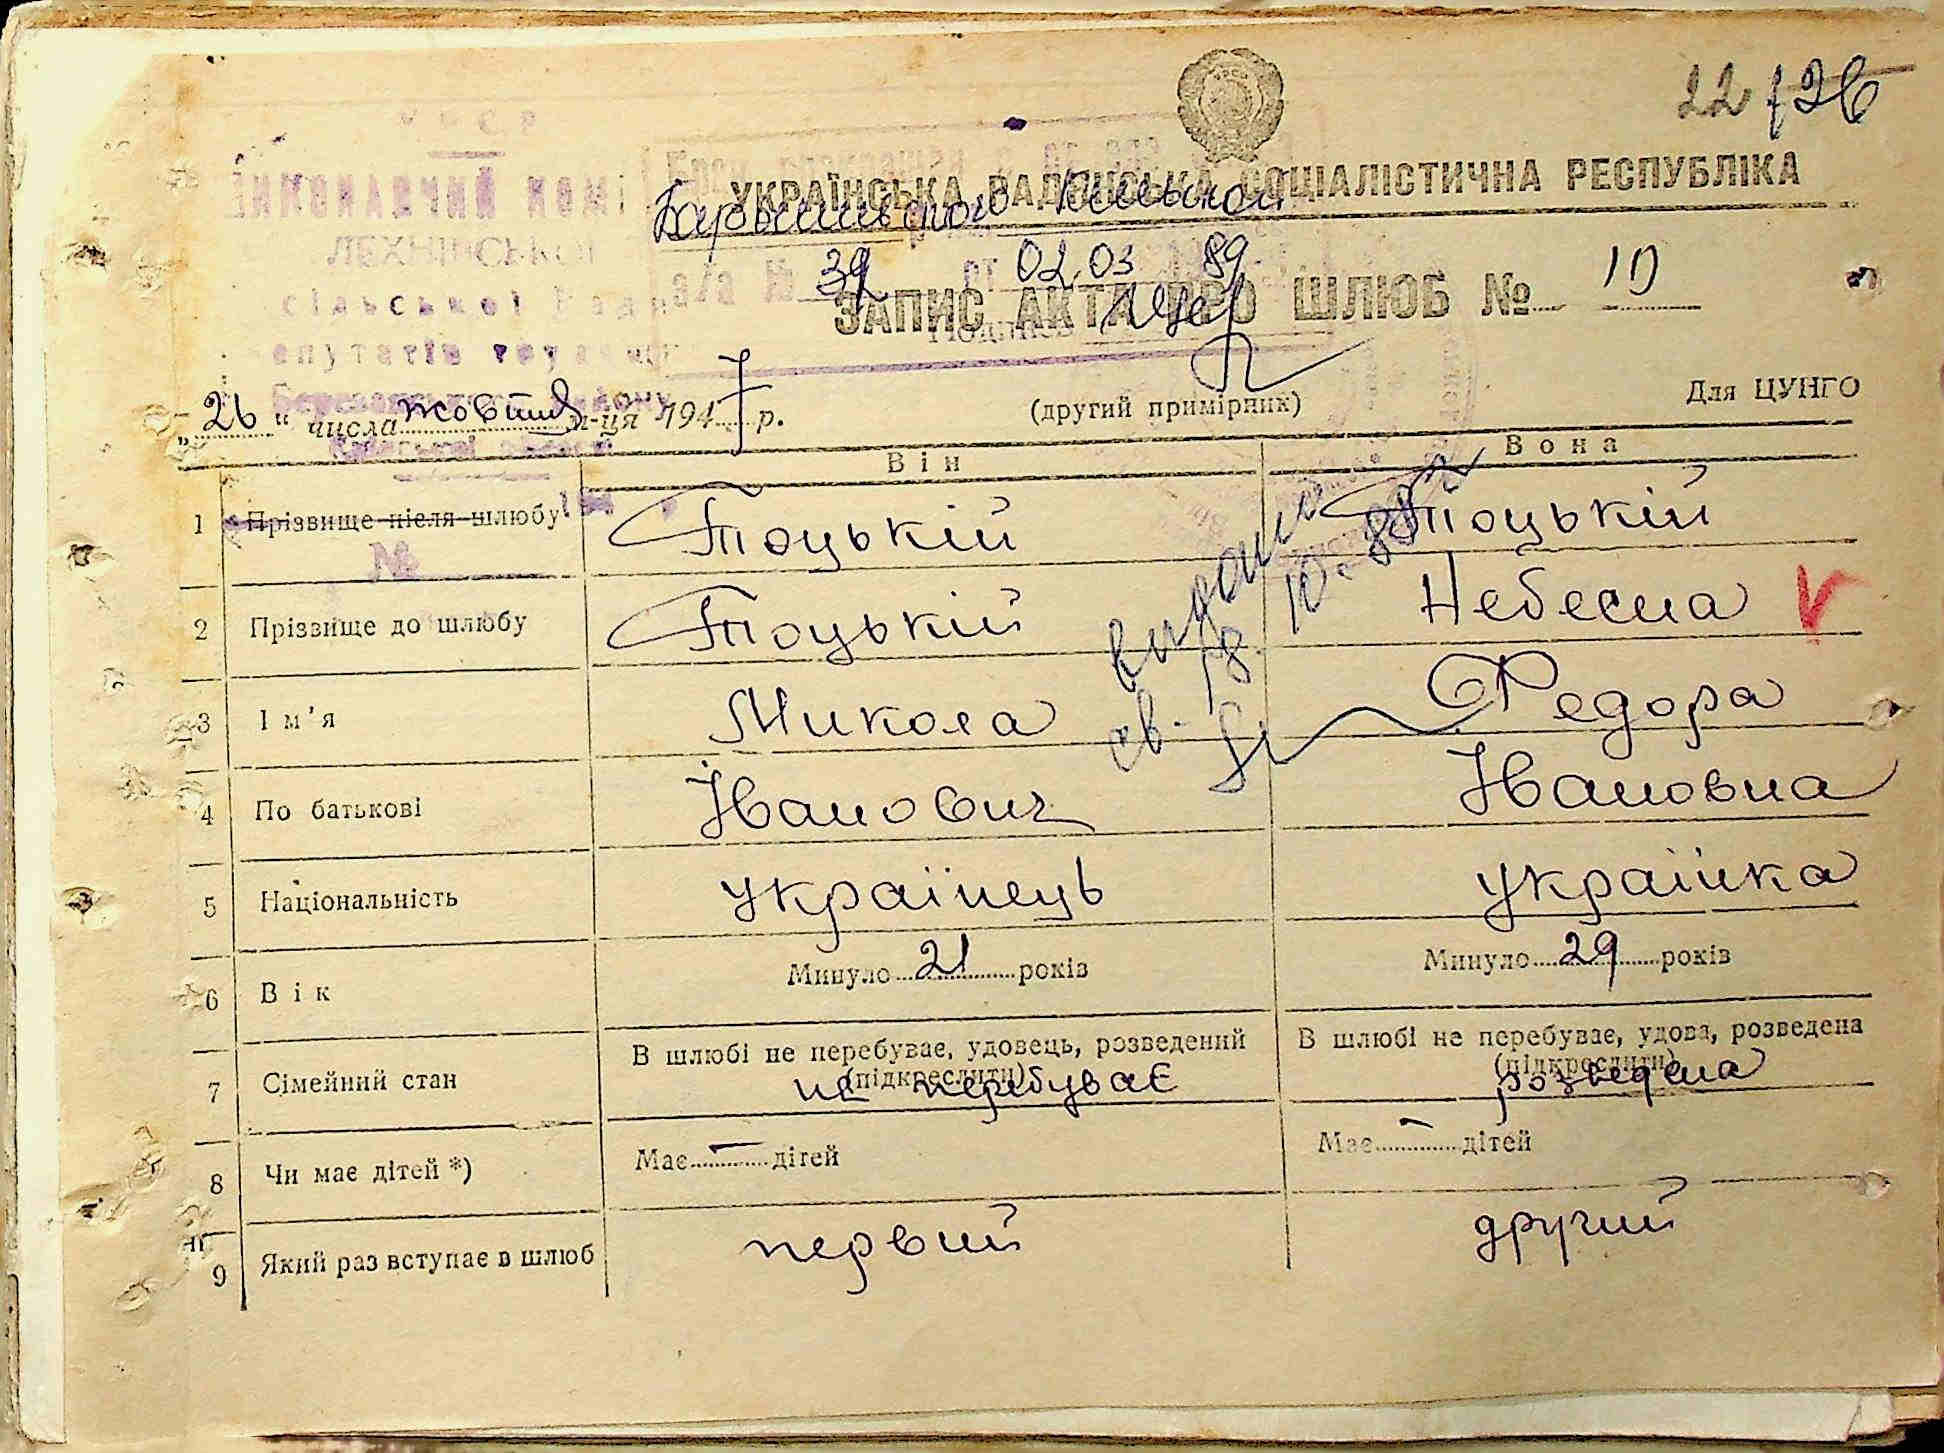 22 26
УКРАЇНСЬКА РАДЯНСЬКА СОЦІАЛІСТИЧНА РЕСПУБЛІКА
УРСР
ВИКОНАВЧИЙ КОМІ
ЛЕХНІВСЬКОЇ
сільської Ради
депутатів трудящих
Березанського району
Київської області
194
№
а/а № 39 от 02.03 89
Подпись
ЗАПИС АКТА ПРО ШЛЮБ № 10
„26" числа жовтня м-ця 1947 р.
(другий примірник)
Для ЦУНГО
Він
Вона
1 Прізвище після шлюбу Тоцькій Тоцькій
2 Прізвище до шлюбу Тоцькій Небесна
видани
св. 18. 10.
3 Ім'я Микола Федора
4 По батькові Іванович Івановна
5 Національність українець українка
6 Вік Минуло 21 років Минуло 29 років
7 Сімейний стан В шлюбі не перебуває, удовець, розведений (підкреслити) не перебуває В шлюбі не перебуває, удова, розведена (підкреслити) розведена
8 Чи має дітей *) Має — дітей Має — дітей
9 Який раз вступає в шлюб первий другий